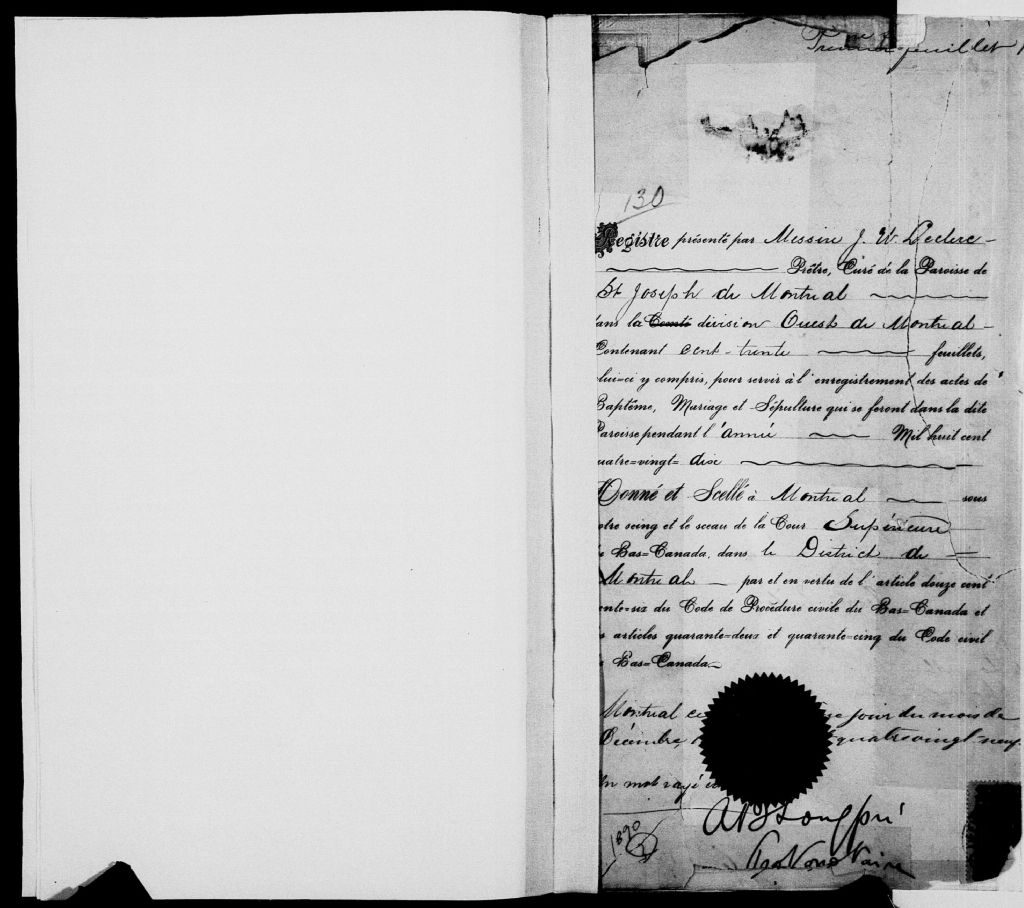 Premier feuillet
130
Registre présenté par Messire J. U. Leclerc
Prêtre, Curé de la Paroisse de
St Joseph de Montréal
ans la Comté division Ouest de Montréal
Contenant cent-trente feuillets,
lui=ci y compris, pour servir à l'enregistrement des actes de
Baptême, Mariage et Sépulture qui se feront dans la dite
Paroisse pendant l'année Mil huit cent
uatre=vingt= dix
Donné et Scellé à Montréal sous
otre seing et le sceau de la Cour Supérieure
Bas=Canada, dans le District de
Montréal par et en vertu de l'article douze cent
ente=six du Code de Procédure civile du Bas=Canada et
s articles quarante=deux et quarante=cinq du Code civil
Bas=Canada
Montréal ce jour du mois de
Décembre quatrevingt-neuf
Un mot rayé
A B Longpré
1890
Protonotaire